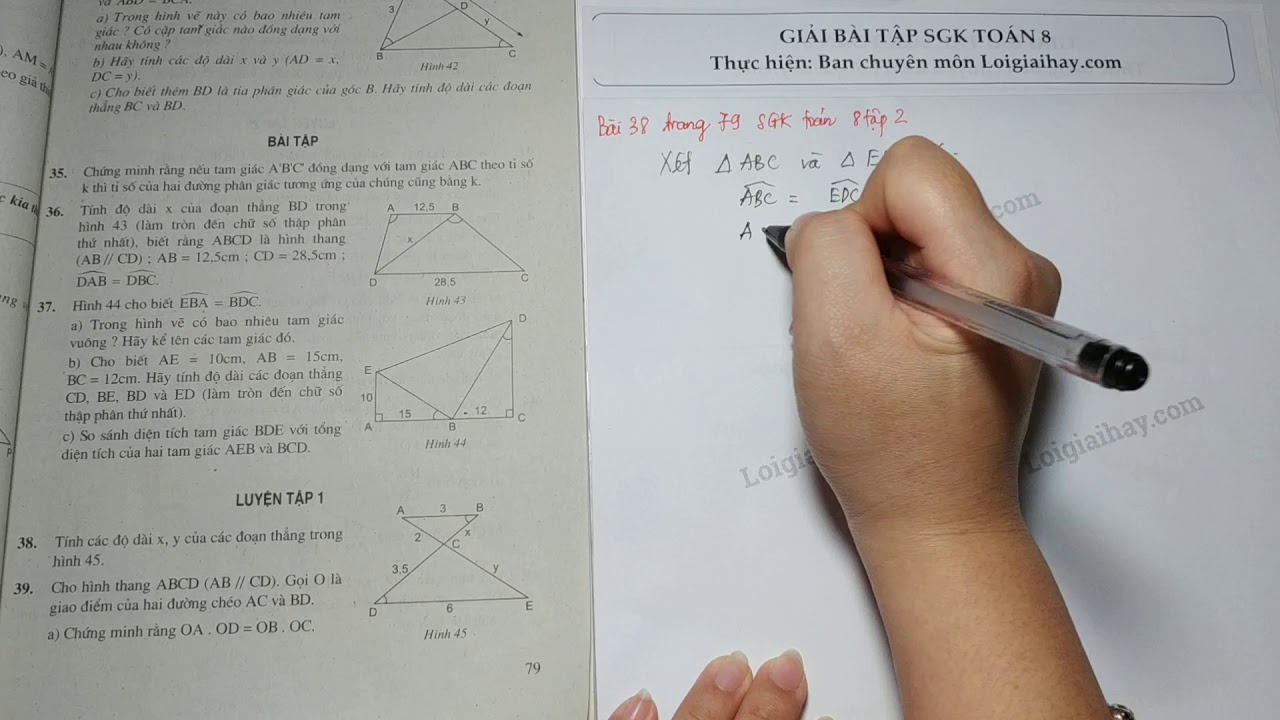 và ABD = BCA.
a) Trong hình vẽ này có bao nhiêu tam
giác ? Có cặp tam giác nào đồng dạng với
nhau không ?
b) Hãy tính các độ dài x và y (AD = x,
DC = y).
c) Cho biết thêm BD là tia phân giác của góc B. Hãy tính độ dài các đoạn
thẳng BC và BD.
3
D
y
B
C
Hình 42
AM =
BÀI TẬP
35. Chứng minh rằng nếu tam giác A'B'C' đồng dạng với tam giác ABC theo tỉ số
k thì tỉ số của hai đường phân giác tương ứng của chúng cũng bằng k.
36. Tính độ dài x của đoạn thẳng BD trong
hình 43 (làm tròn đến chữ số thập phân
thứ nhất), biết rằng ABCD là hình thang
(AB // CD) ; AB = 12,5cm ; CD = 28,5cm ;
DAB = DBC.
A 12,5 B
x
D 28,5 C
Hình 43
37. Hình 44 cho biết EBA = BDC.
a) Trong hình vẽ có bao nhiêu tam giác
vuông ? Hãy kể tên các tam giác đó.
b) Cho biết AE = 10cm, AB = 15cm,
BC = 12cm. Hãy tính độ dài các đoạn thẳng
CD, BE, BD và ED (làm tròn đến chữ số
thập phân thứ nhất).
c) So sánh diện tích tam giác BDE với tổng
diện tích của hai tam giác AEB và BCD.
D
E
10
15 12
A B C
Hình 44
LUYỆN TẬP 1
38. Tính các độ dài x, y của các đoạn thẳng trong
hình 45.
39. Cho hình thang ABCD (AB // CD). Gọi O là
giao điểm của hai đường chéo AC và BD.
a) Chứng minh rằng OA . OD = OB . OC.
A 3 B
2 x
C
3,5 y
D 6 E
Hình 45
79
GIẢI BÀI TẬP SGK TOÁN 8
Thực hiện: Ban chuyên môn Loigiaihay.com
Bài 38 trang 79 SGK toán 8 tập 2
Xét △ ABC và △ E
ABC = EDC
A
Loigiaihay.com